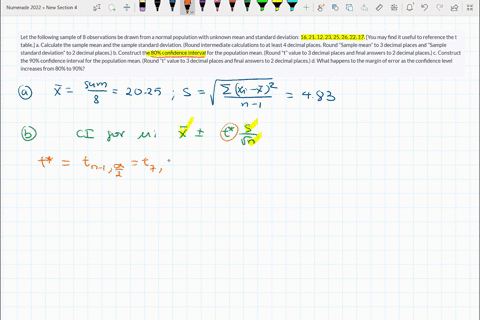 Numerade 2022 > New Section 4
Let the following sample of 8 observations be drawn from a normal population with unknown mean and standard deviation: 16, 21, 12, 23, 25, 26, 22, 17. [You may find it useful to reference the t
table.] a. Calculate the sample mean and the sample standard deviation. (Round intermediate calculations to at least 4 decimal places. Round "Sample mean" to 3 decimal places and "Sample
standard deviation" to 2 decimal places.) b. Construct the 80% confidence interval for the population mean. (Round "t" value to 3 decimal places and final answers to 2 decimal places.) c. Construct
the 90% confidence interval for the population mean. (Round "t" value to 3 decimal places and final answers to 2 decimal places.) d. What happens to the margin of error as the confidence level
increases from 80% to 90%?
a x̄ = sum/8 = 20.25 ; S = √(Σ(xi - x̄)²/(n-1)) = 4.83
b CI for μ: x̄ ± t* s/√n
t* = t n-1, α/2 = t 7,